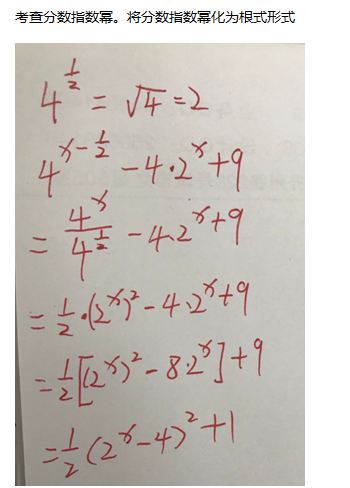 考查分数指数幂。将分数指数幂化为根式形式
4^{\frac{1}{2}} = √4 = 2
4^{x-\frac{1}{2}} - 4·2^x + 9
= \frac{4^x}{4^{\frac{1}{2}}} - 4·2^x + 9
= \frac{1}{2}·(2^x)^2 - 4·2^x + 9
= \frac{1}{2}[(2^x)^2 - 8·2^x] + 9
= \frac{1}{2}(2^x - 4)^2 + 1